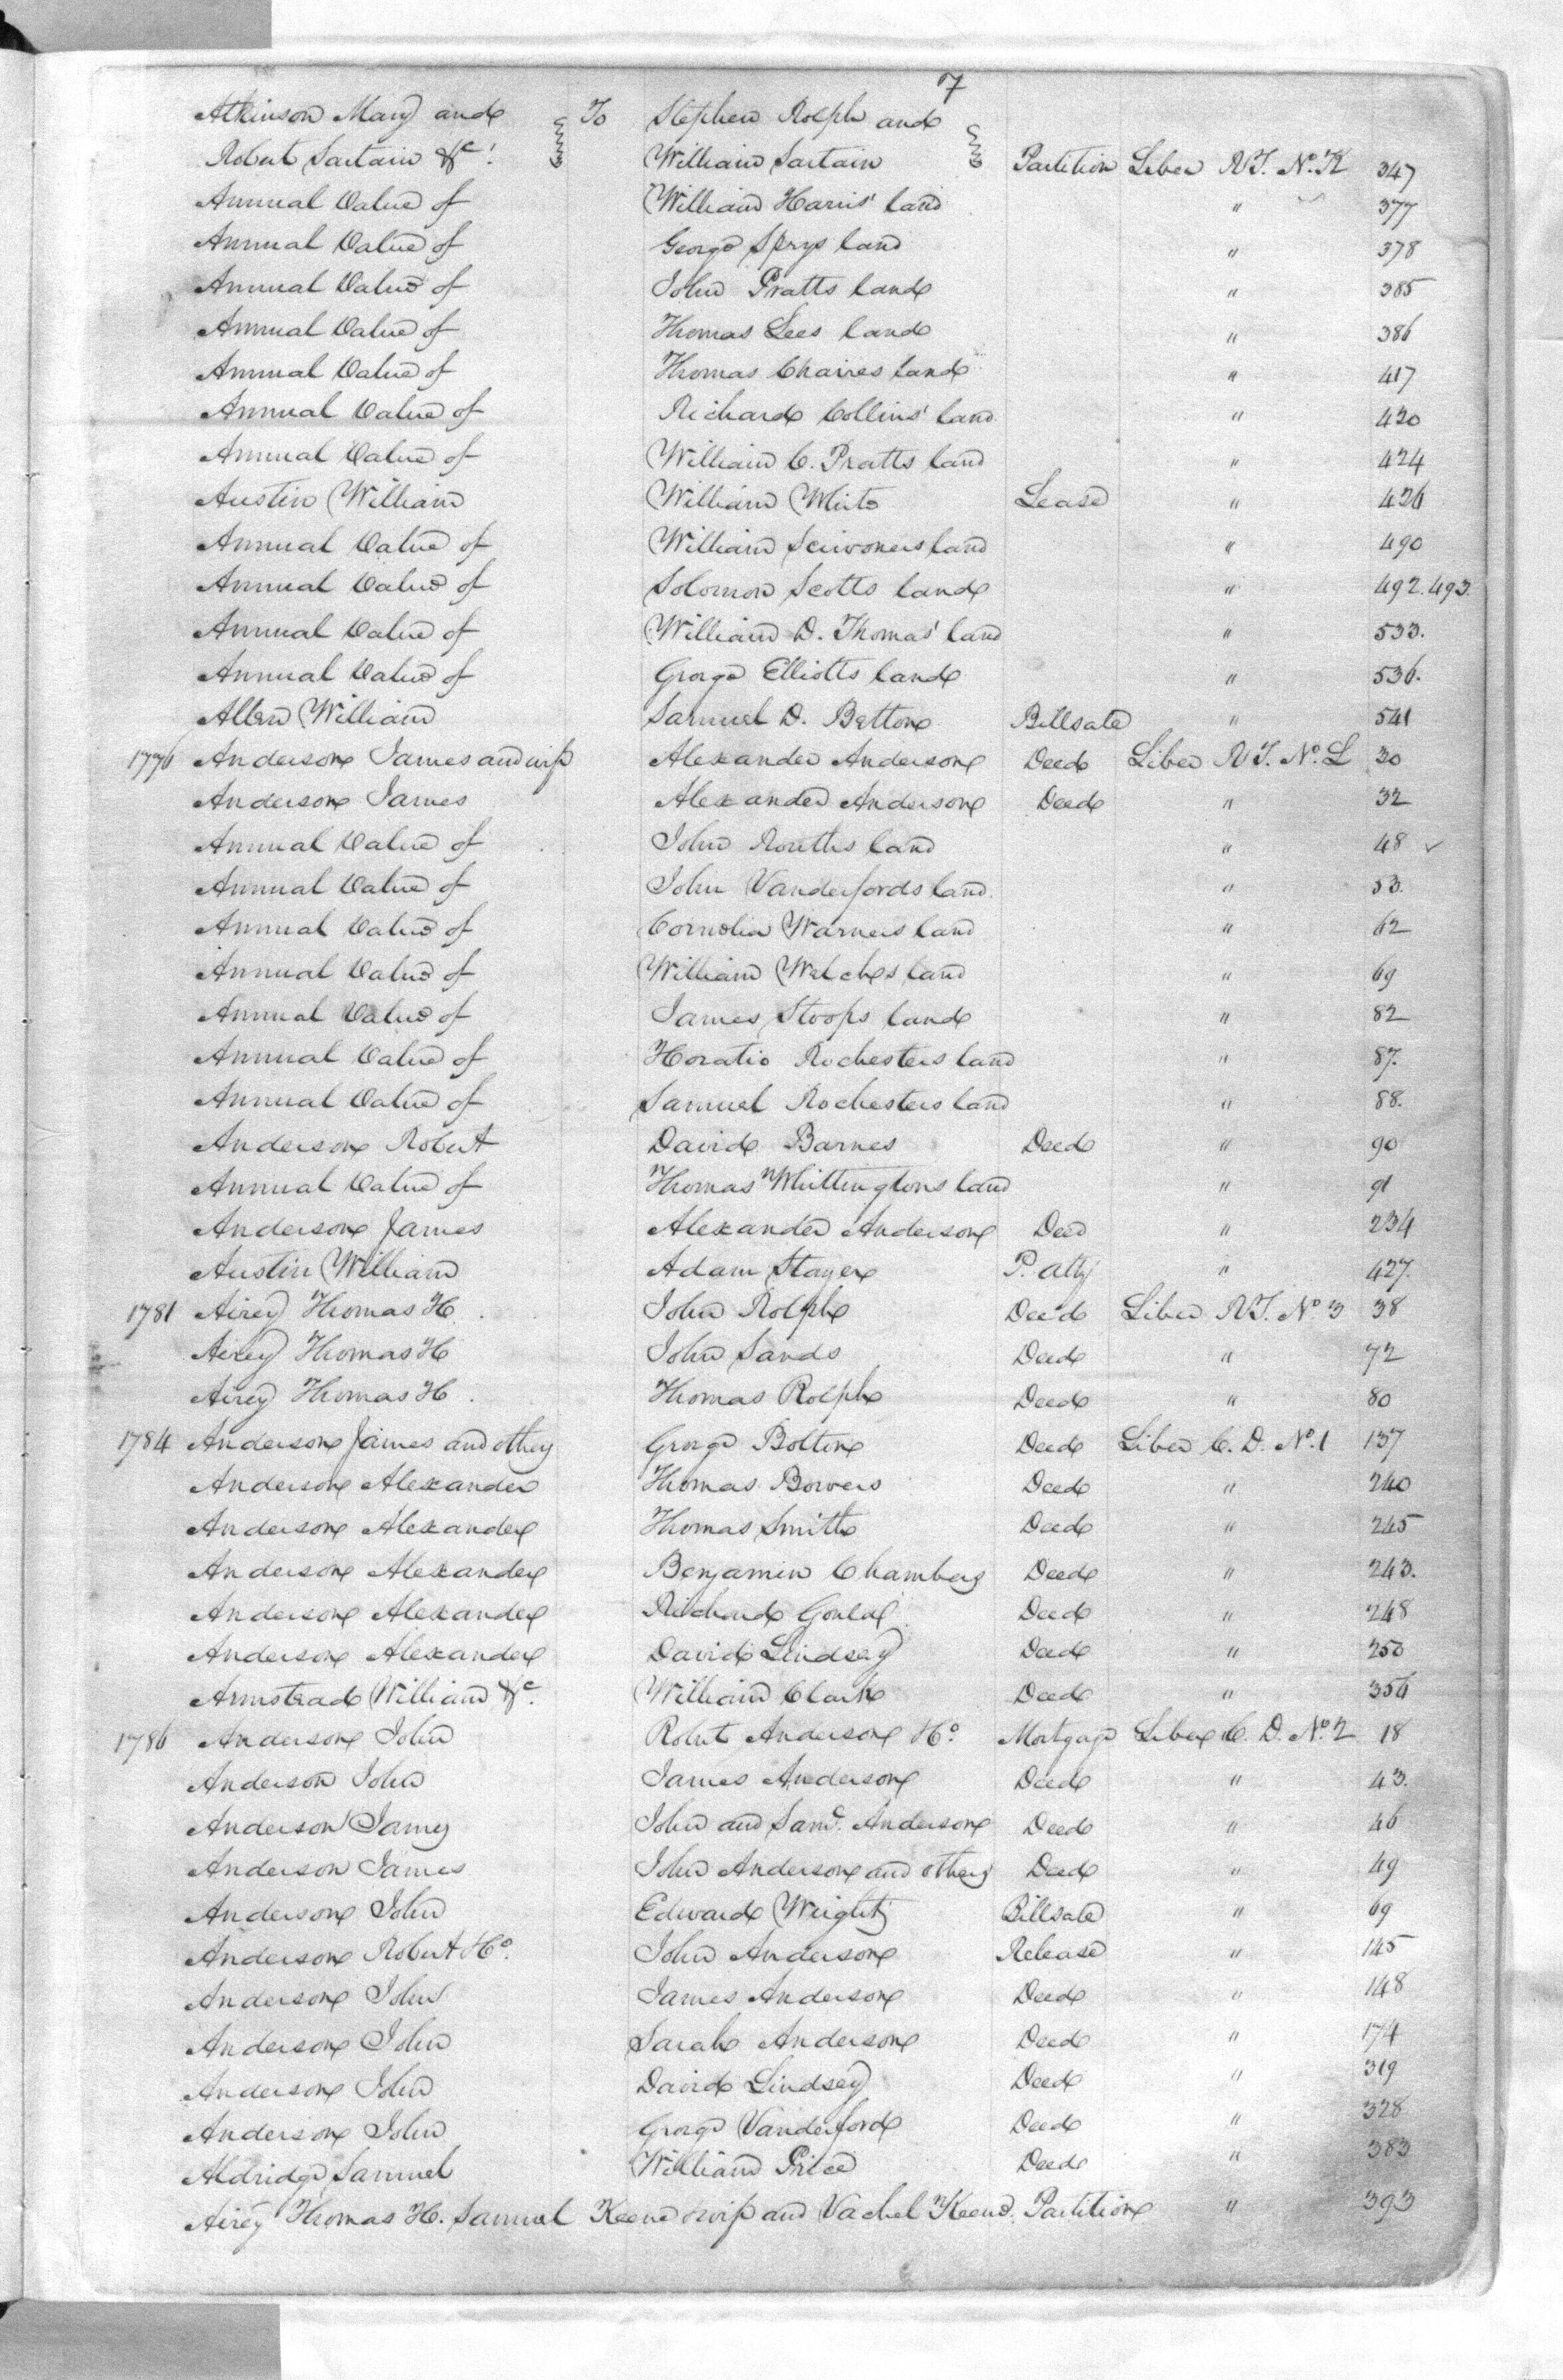 7
Atkinson Mary and To Stephen Rolph and
Robert Sartain &c. William Sartain Partition Liber RT. No. K 347
Annual Value of William Harris' land " 377
Annual Value of George Sprys land " 378
Annual Value of John Pratts land " 385
Annual Value of Thomas Lees land " 386
Annual Value of Thomas Chaires land " 417
Annual Value of Richard Collins' land " 420
Annual Value of William C. Pratts land " 424
Austin William William White Lease " 426
Annual Value of William Scivoners land " 490
Annual Value of Solomon Scotts land " 492.493.
Annual Value of William D. Thomas' land " 533.
Annual Value of George Elliotts land " 536.
Allen William Samuel D. Betton Billsale " 541
1776 Anderson James and wife Alexander Anderson Deed Liber RT. No. L 30
Anderson James Alexander Anderson Deed " 32
Annual Value of John Rouths land " 48
Annual Value of John Vanderfords land " 53.
Annual Value of Cornelia Warners land " 62
Annual Value of William Welches land " 69
Annual Value of James Stoops land " 82
Annual Value of Horatio Rochesters land " 87.
Annual Value of Samuel Rochesters land " 88.
Anderson Robert David Barnes Deed " 90
Annual Value of Thomas Whittingtons land " 91
Anderson James Alexander Anderson Deed " 234
Austin William Adam Stayer P. Atty " 427.
1781 Airey Thomas H. John Rolph Deed Liber RT. No. 3 38
Airey Thomas H John Sands Deed " 72
Airey Thomas H. Thomas Rolph Deed " 80
1784 Anderson James and others George Bolton Deed Liber C. D. No. 1 137
Anderson Alexander Thomas Bowers Deed " 240
Anderson Alexander Thomas Smith Deed " 245
Anderson Alexander Benjamin Chambers Deed " 243.
Anderson Alexander Richard Gould Deed " 248
Anderson Alexander David Lindsey Deed " 250
Armstrad William &c. William Clark Deed " 356
1786 Anderson John Robert Anderson Ho. Mortgage Liber C. D. No. 2 18
Anderson John James Anderson Deed " 43.
Anderson James John and Saml. Anderson Deed " 46
Anderson James John Anderson and others Deed " 49
Anderson John Edward Wright Billsale " 69
Anderson Robert Ho. John Anderson Release " 145
Anderson John James Anderson Deed " 148
Anderson John Sarah Anderson Deed " 174
Anderson John David Lindsey Deed " 319
Anderson John George Vanderford Deed " 328
Aldridge Samuel William Price Deed " 383
Airey Thomas H. Samuel Keene wife and Vachel Keene. Partition " 393